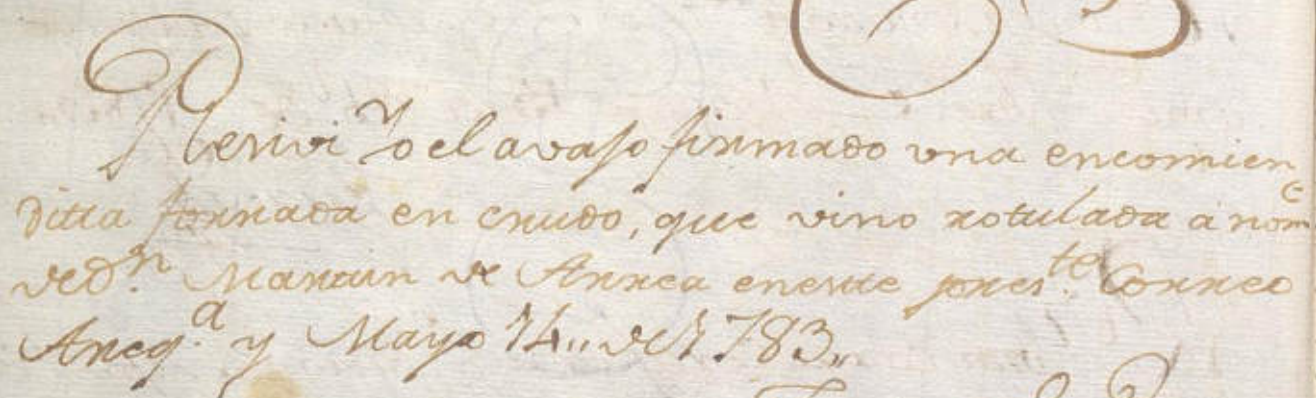 Rerivi Yo el avajo firmado vna encomien
ditta forrada en crudo, que vino rotulada à nom.e
de d.n Martin de Arrea eneste pres.te Correo
Areq.a y Mayo 14,, de 1783,,